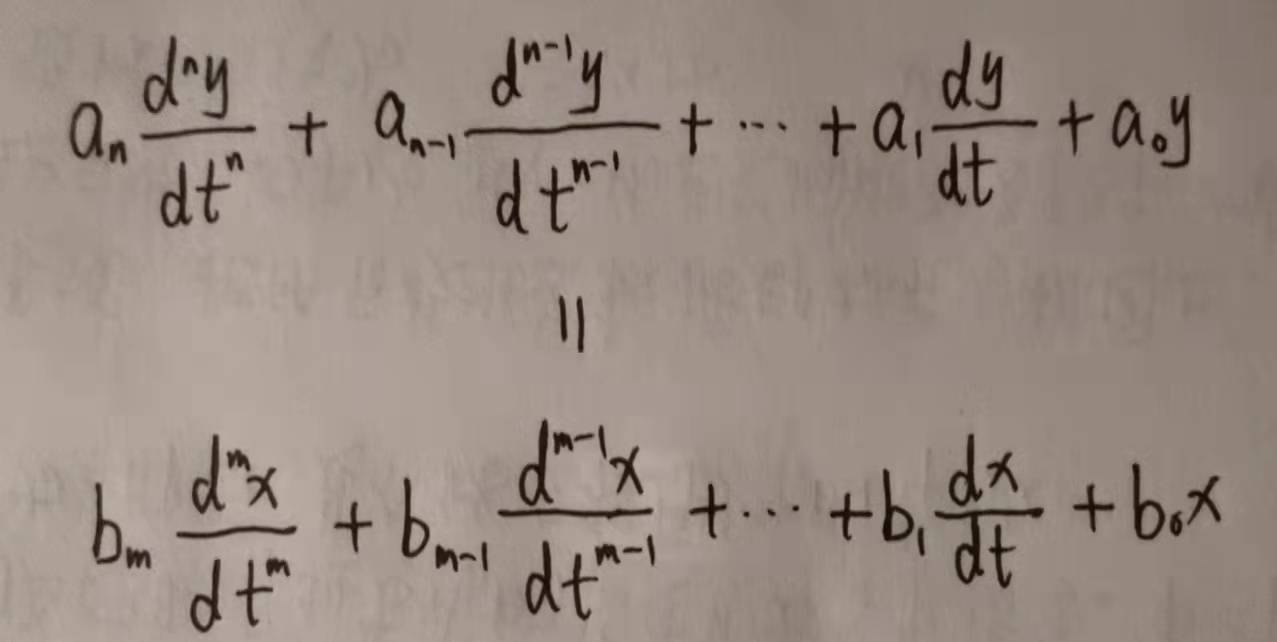 a_n \frac{d^n y}{dt^n} + a_{n-1} \frac{d^{n-1} y}{dt^{n-1}} + \cdots + a_1 \frac{dy}{dt} + a_0 y
=
b_m \frac{d^m x}{dt^m} + b_{m-1} \frac{d^{m-1} x}{dt^{m-1}} + \cdots + b_1 \frac{dx}{dt} + b_0 x